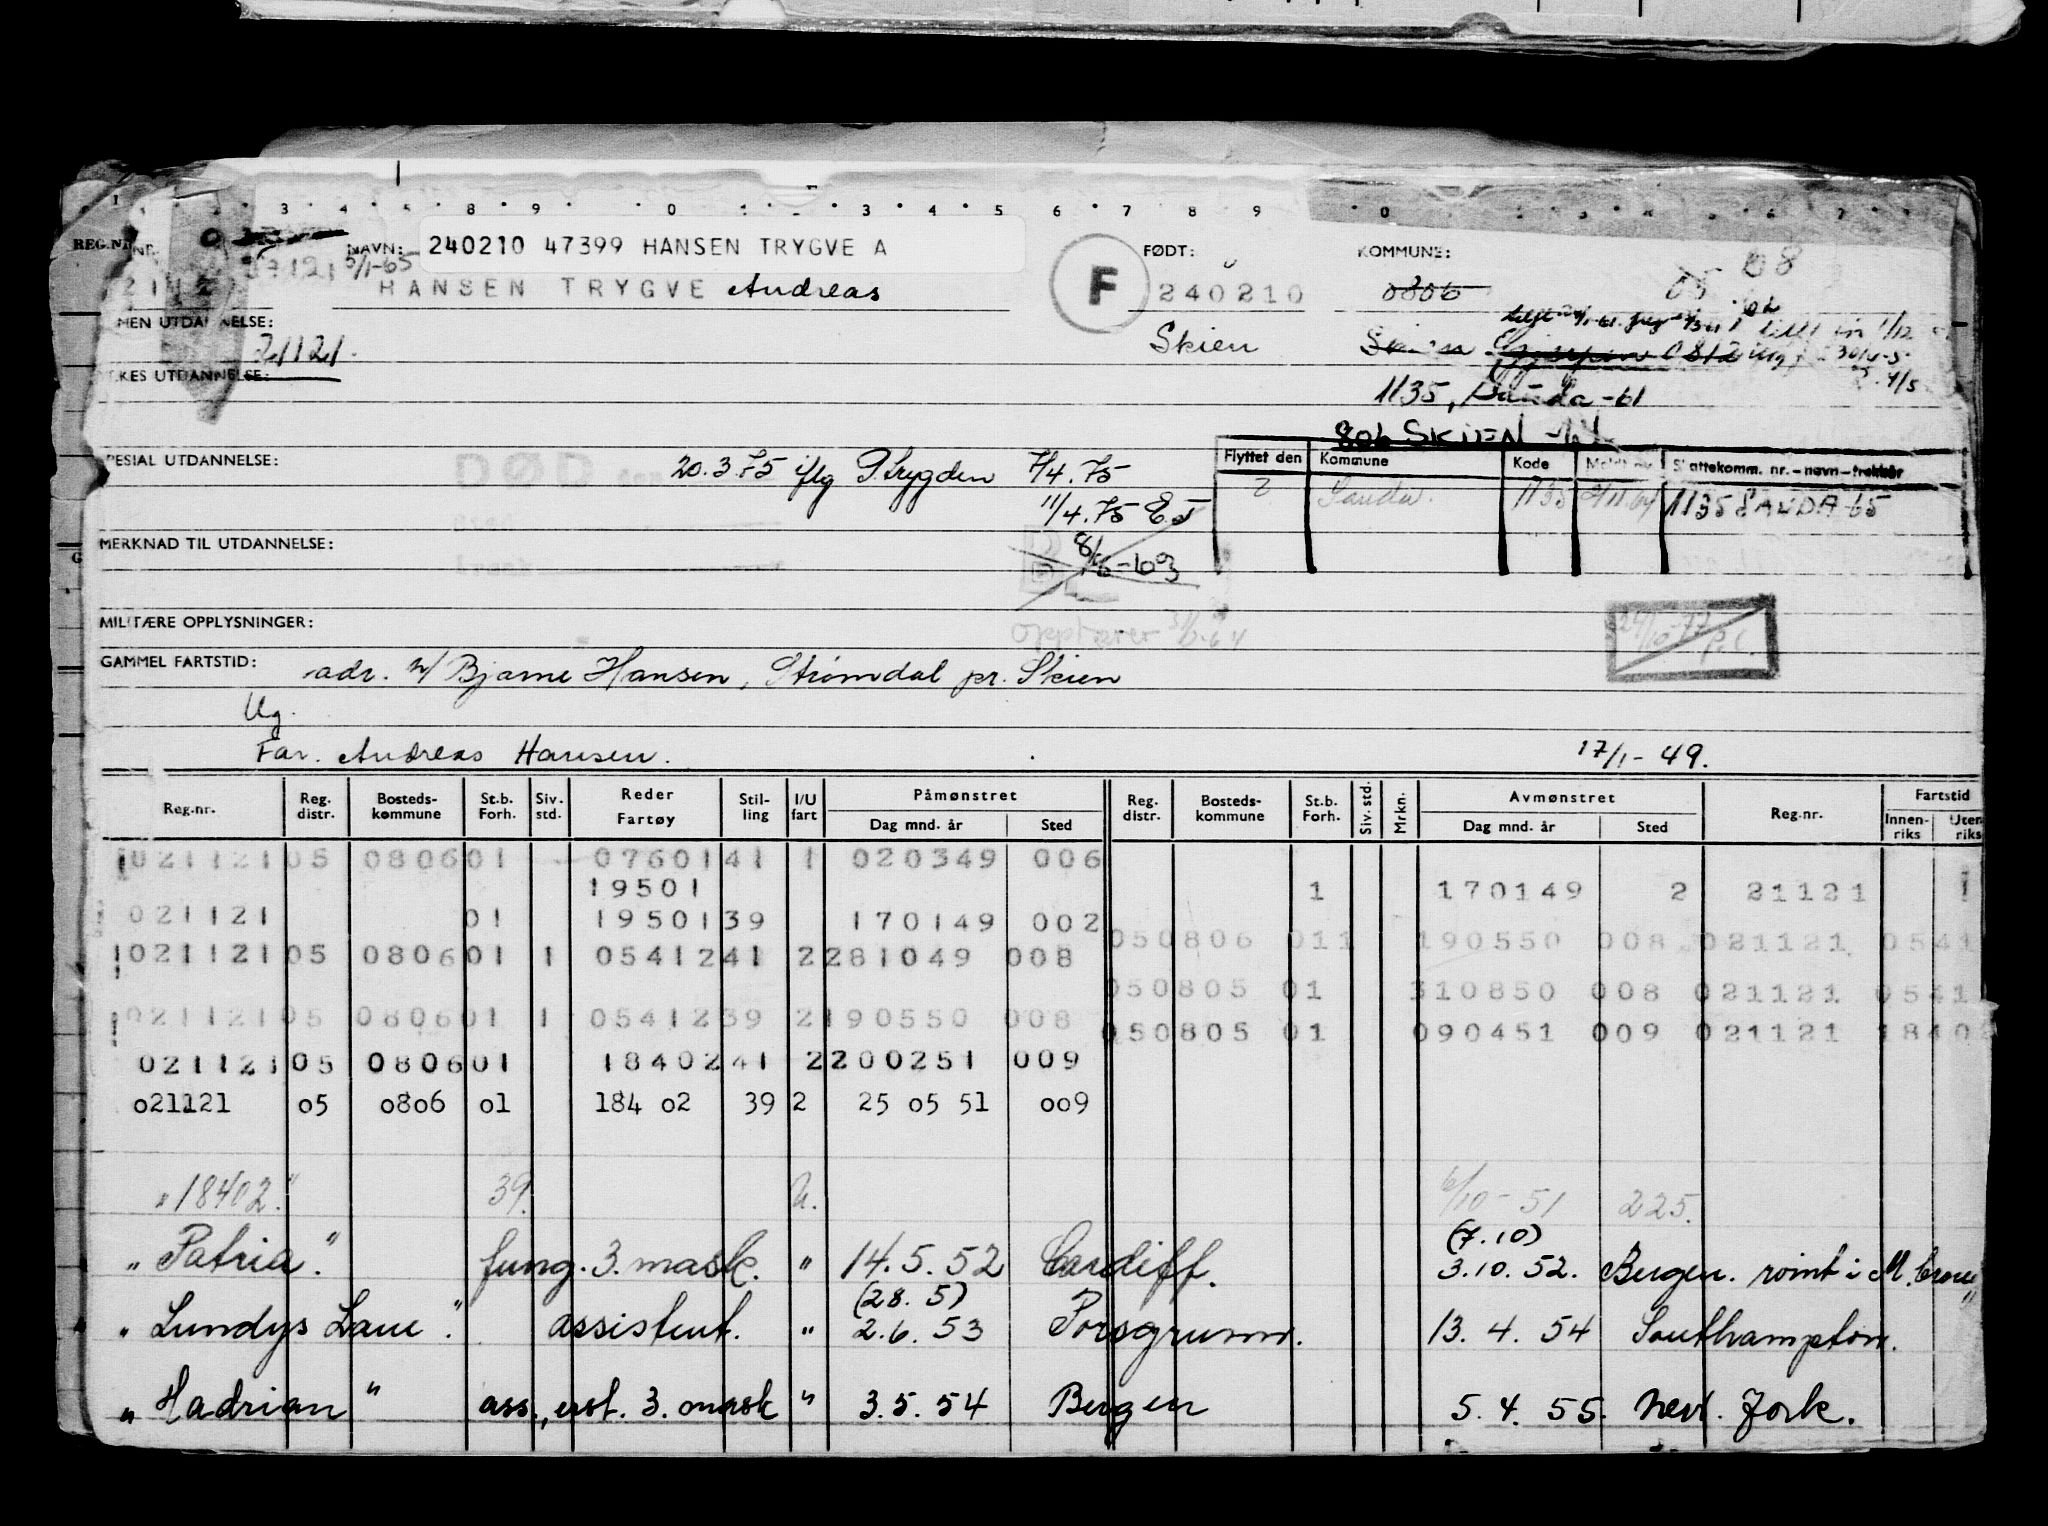 REG.NR. NAVN: 240210 47399 HANSEN TRYGVE A FØDT: KOMMUNE: 08
5/1-65 HANSEN TRYGVE Andreas F 240210 0806 05
Skien
21121.
1135, Sauda -61
806 SKIEN
SPESIAL UTDANNELSE: DØD 20.3.75 iflg Trygden 7/4.75
11/4.75 EJ
Flyttet den Kommune Kode Skattekomm. nr. – navn – trekkår
2 Sauda. 1135 1135 SAUDA-65
MERKNAD TIL UTDANNELSE:
MILITÆRE OPPLYSNINGER:
GAMMEL FARTSTID: adr. v/ Bjarne Hansen, Strømdal pr. Skien
Ug.
Far. Andreas Hansen. 17/1-49.
Reg.nr. Reg. distr. Bosteds-kommune St.b. Forh. Siv. std. Reder Fartøy Stil-ling I/U fart Påmønstret Dag mnd. år Sted Reg. distr. Bosteds-kommune St.b. Forh. Siv. std. Mrkn. Avmønstret Dag mnd. år Sted Reg.nr. Fartstid Innen-riks Uten-riks
021121 05 0806 01 07601 41 1 020349 006
19501 1 170149 2 21121 1
021121 01 19501 39 170149 002
050806 011 190550 008 021121 0541
021121 05 0806 01 1 05412 41 2 281049 008
050805 01 310850 008 021121 0541
021121 05 0806 01 1 05412 39 2 190550 008
050805 01 090451 009 021121 18402
021121 05 0806 01 18402 41 2 200251 009
021121 05 0806 01 184 02 39 2 25 05 51 009
"18402." 39. U. 6/10-51 225.
(7.10)
"Patria". fung. 3. mask. " 14.5.52 Cardiff. 3.10.52. Bergen. rømt i
(28.5)
"Lundys Lane". assistent. " 2.6.53 Porsgrunn. 13.4.54 Southampton.
"Hadrian" ass., 3. mask " 3.5.54 Bergen 5.4.55. New. York.